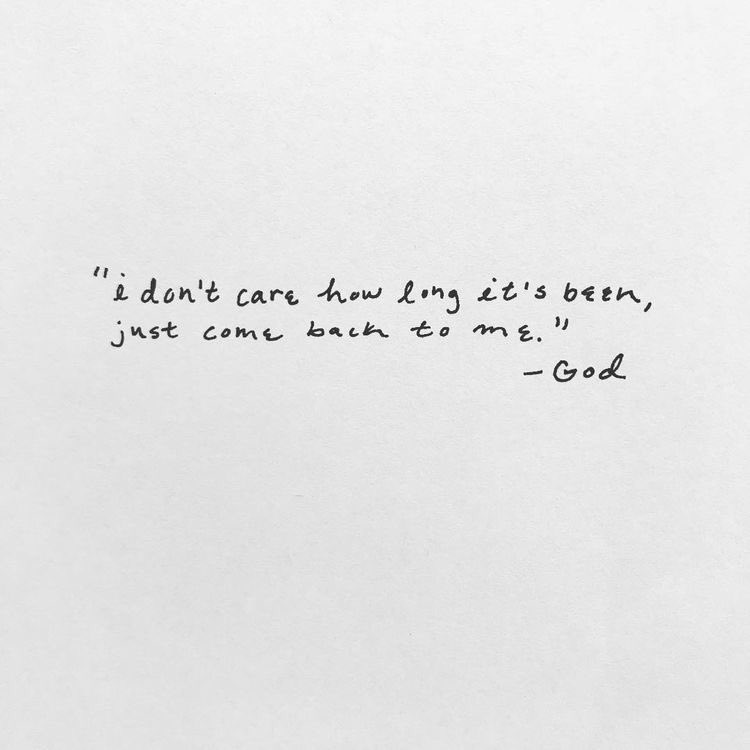 "i don't care how long it's been,
just come back to me."
–God